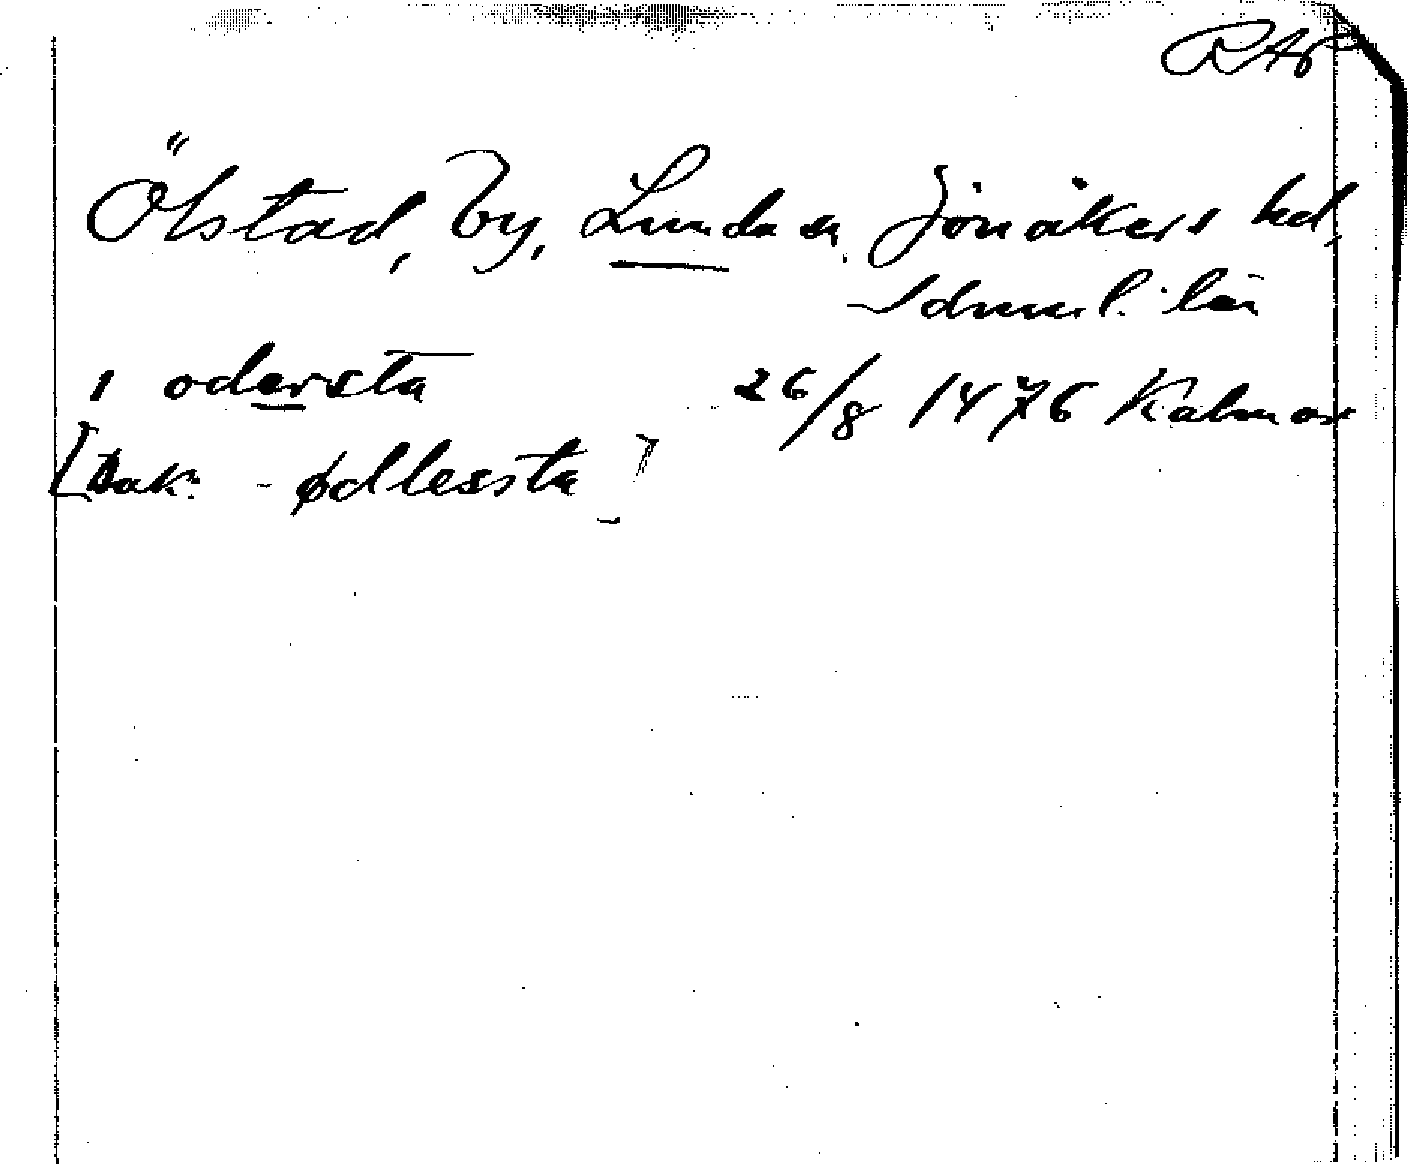 RAP
Ölstad, by, Lunda sn. Jönåkers hd,
Sdmnl. län
i odersta 26/8 1476 Kalmar
[bak: - ødlessta]